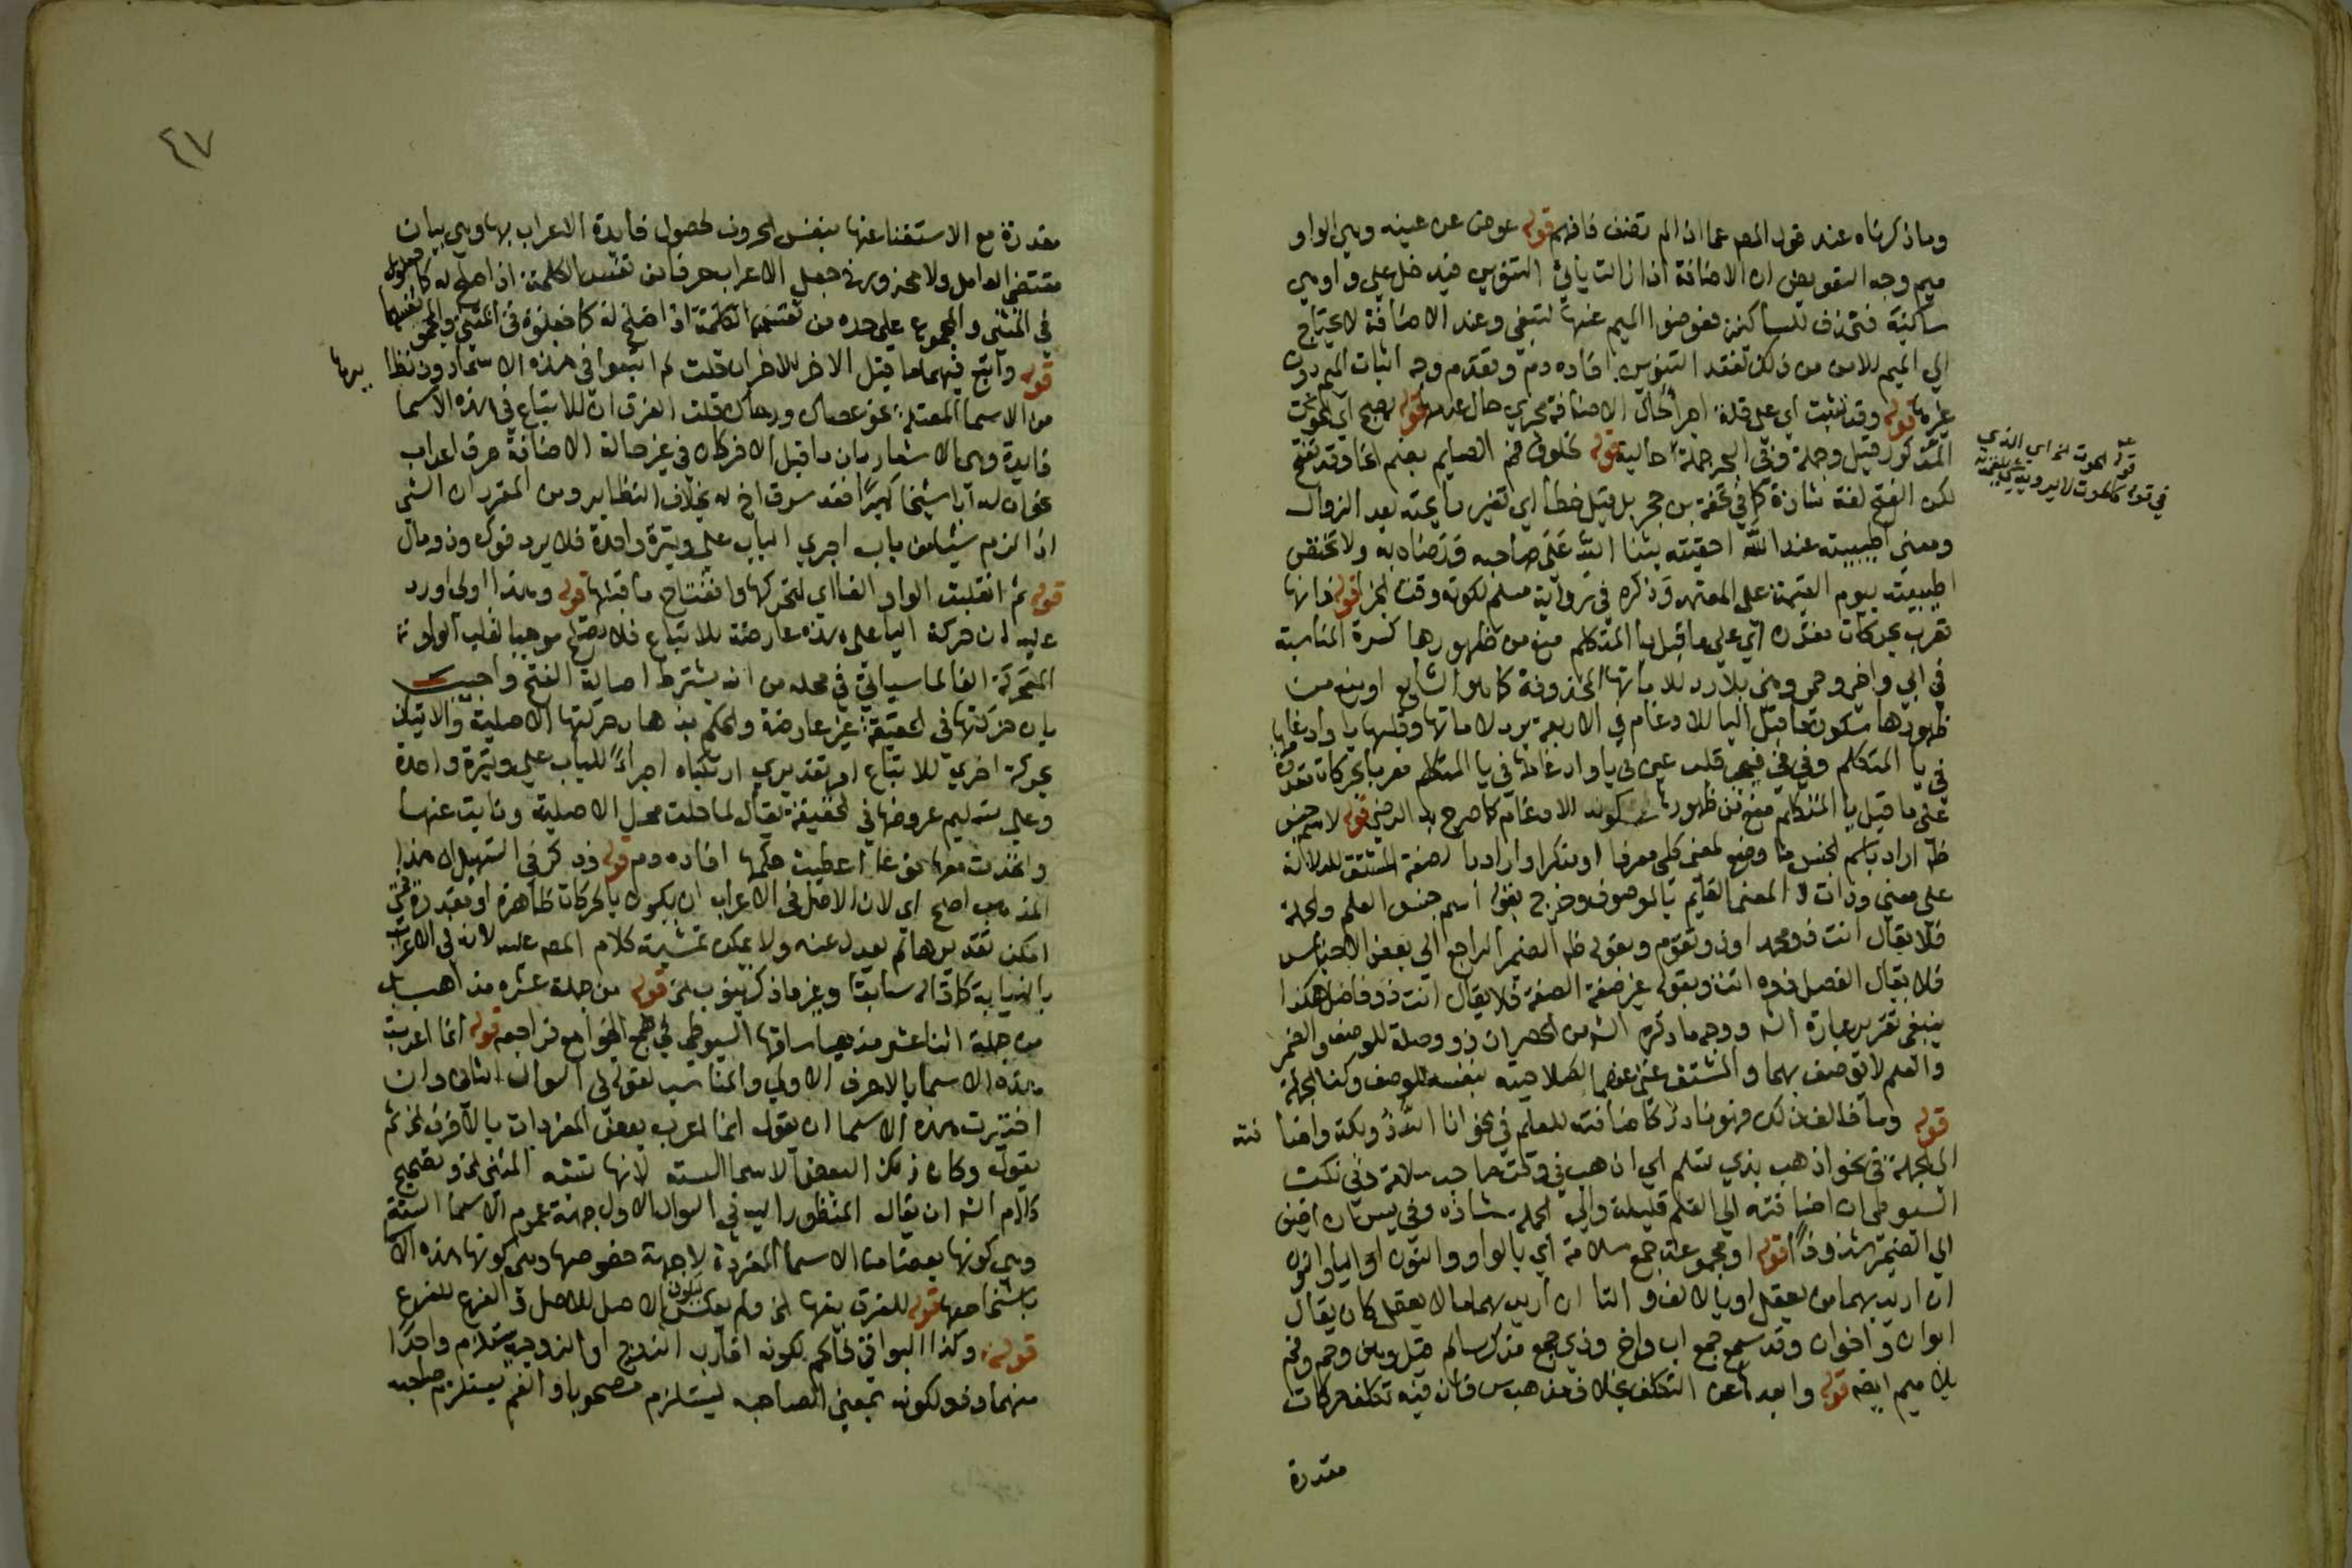 وما ذكرناه عند قول المص عما اذا لم تضف فافهم قوله عوض عن عينه وهي الواو
ميم وجه التعويض ان الاضافة اذا زالت يأتي التنوين فيدخل على واو هي
ساكنة فتحذف للساكنين فعوضوا الميم عنها لتبقى وعند الاضافة لا يحتاج
الى الميم للامن من ذلك لفقد التنوين افاده دم وتقدم وجه اثبات الميم دون
غيرها قوله وقد تثبت اي على قلة اجراء لحال الاضافة مجرى حال عدمها قوله يصبح اي الحوت
المذكور قيل وجملة وفي البحر جملة حالية قوله لخلوف فم الصايم بضم الخا وقد تفتح
لكن الفتح لغة شاذة كما في تحفة بن حجر بل قيل خطأ اي تغير رايحته بعد الزوال
ومعنى اطيبيته عند الله احقيته بثنا الله على صاحبه ورضاه به ولا تختص
اطيبيته بيوم القيمة على المعتمد وذكره في رواية مسلم لكونه وقت الجزا قوله فانها
تعرب بحركات مقدرة اي على ما قبل يا المتكلم منع من ظهورها كسرة المناسبة
في ابي واخي وحمي وهني بلا رد للاماتها المحذوفة كما هو الشايع او منع من
ظهورها سكون ما قبل اليا للادغام في الاربعة برد لاماتها وقلبها يا وادغامها
في يا المتكلم وفي في فيجب قلب عين في يا وادغامها في يا المتكلم معربا بحركات مقدرة
على ما قبل يا المتكلم منع من ظهورها سكونه للادغام كما صرح به الرضي قوله لاسم جنس
ظ اراد باسم الجنس ما وضع لمعنى كلي معرفا او منكرا واراد با لصفة المشتق للدلالة
على معنى وذات والمعنى القايم بالموصوف وخرج بقوله اسم جنس العلم والجملة
فلا يقال انت ذو محمد او ذو تقوم وبقوله ظ الضمير الراجع الى بعض الاجناس
فلا يقال الفضل ذوه انت وبقوله غير صفة الصفة فلا يقال انت ذو فاضل هكذا
ينبغي تقرير عبارة الش ووجه ما ذكره الش من الحصر ان ذو وصلة للوصف والضمير
والعلم لا يوصف بهما والمشتق غني عنها لصلاحيته بنفسه للوصف وكذا الجملة
قوله وما خالف ذلك فهو نادر كاضافته للعلم في نحو انا الله ذو بكة واضا فته
الى الجملة في نحو اذهب بذي تسلم اي اذهب في وقت صاحب سلامة وفي نكت
السيوطي ان اضافته الى العلم قليلة والى الجملة شاذه وفي يس ان اضيف
الى الضمير شذوذا قوله او مجموعة جمع سلامة اي بالواو والنون او اليا والنون
ان اريد بهما من يعقل او بالالف والتا ان اريد بهما ما لا يعقل كان يقال
ابوان واخوان وقد سمع جمع اب واخ وذي جمع مذكر سالم قيل وهن وحم وفم
بلا ميم ايضا قوله وابعدها عن التكلف بخلاف مذهب س فان فيه تكلف حركات
مقدرة
قوله الحوت الخ اي الذي
في قوله كالحوت لا يرويه شي يلقمه
٤٧
مقدرة مع الاستغنا عنها بنفس الحروف لحصول فايدة الاعراب بها وهي بيان
مقتضى العامل ولا محذور في جعل الاعراب حرفا من نفس الكلمة اذا صلح له كما جعلوه
في المثنى والمجموع على حده من نفس الكلمة اذا صلح له كما جعلوه في المثنى والمجموع
قوله واتبع فيهما ما قبل الاخر للاخر ان قلت لم اتبعوا في هذه الاسما دون نظا يرها
من الاسما المعتلة نحو عصاك ورحاك قلت الفرق ان للاتباع في هذه الاسما
فايدة وهي الاشعار بان ما قبل الاخر كان في غير حالة الاضافة حرف اعراب
نحو ان له ابا شيخا كبيرا فقد سرق اخ له بخلاف النظاير ومن المقرر ان الشي
اذا لزم شيا من باب اجري الباب على وتيرة واحدة فلا يرد فوك وذو مال
قوله ثم انقلبت الواو الفا اي لتحركها وانفتاح ما قبلها قوله وهذا اولى اورد
عليه ان حركة اليا على هذه عارضة للاتباع فلا يصلح موجبا لقلب الواو
المتحركة الفا لما سياتي في محله من انه يشترط اصالة الفتح واجيب
بان حركتها في الحقيقة غير عارضة والحكم بذهاب حركتها الاصلية والاتيان
بحركة اخرى للاتباع امر تقديري ارتكبناه اجراءً للباب على وتيرة واحدة
وعلى تسليم عروضها في الحقيقة يقال لما حلت محل الاصلية ونابت عنها
واتحدت معها نوعا اعطيت حكمها افاده دم قوله وذكر في التسهيل ان هذا
المذهب اصح اي لان الاصل في الاعراب ان يكون بالحركات ظاهرة او مقدرة فمتى
امكن تقديرها لم يعدل عنه ولا يمكن تمشية كلام المص عليه لانه في الاعراب
بالنيابة كما قاله سابقا وغير ما ذكره ينوب الخ قوله من جملة عشره مذاهب بل
من جملة اثنا عشر مذهبا ساقها السيوطي في همع الهوامع فراجعه قوله انما اعربت
هذه الاسما بالاحرف الاولى والمناسب لقوله في السوال الثاني وان
اختيرت هذه الاسما ان يقول انما اعرب بعض المفردات بالاحرف الخ ثم
يقول وكان ذلك البعض الاسما الستة لانها تشبه المثنى الخ وتصحيح
كلام الش ان يقال المنظور اليه في السوال الاول جهة عموم الاسما الستة
وهي كونها بعضا من الاسما المفردة لا جهة خصوصها وهي كونها هذه الا
باشخاصها قوله للفرق بينها الخ ولم يعكس ليكون الاصل للاصل والفرع للفرع
قوله وكذا البواقي فالحم لكونه اقارب الزوج او الزوجة يستلزم واحدا
منهما وذو لكونه بمعنى الصاحب يستلزم مصحوبا والفم يستلزم صاحبه